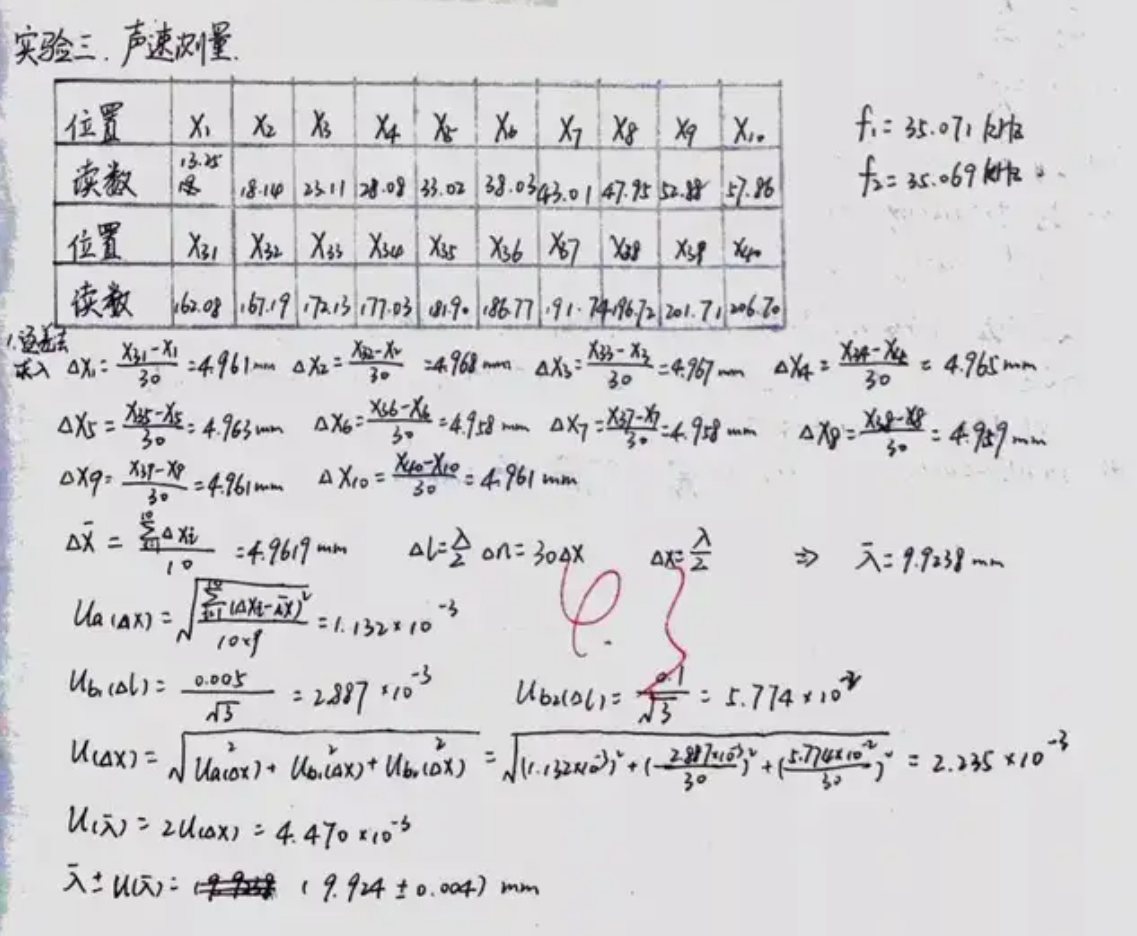 实验三. 声速测量.
位置 X₁ X₂ X₃ X₄ X₅ X₆ X₇ X₈ X₉ X₁₀
读数 13.25 18.14 23.11 28.08 33.02 38.03 43.01 47.95 52.88 57.86
位置 X31 X32 X33 X34 X35 X36 X37 X38 X39 X40
读数 162.08 167.19 172.13 177.03 181.90 186.77 191.74 196.72 201.71 206.70
f₁=35.071 kHz
f₂=35.069 kHz
1.逐差法
求λ ΔX₁=(X31-X1)/30=4.961mm ΔX2=(X32-X2)/30=4.968mm ΔX3=(X33-X3)/30=4.967mm ΔX4=(X34-X4)/30=4.965mm
ΔX5=(X35-X5)/30=4.963mm ΔX6=(X36-X6)/30=4.958mm ΔX7=(X37-X7)/30=4.958mm ΔX8=(X38-X8)/30=4.959mm
ΔX9=(X39-X9)/30=4.961mm ΔX10=(X40-X10)/30=4.961mm
ΔX̄=∑ΔXi/10=4.9619mm Δl=λ/2 Δn=30ΔX ΔX=λ/2 ⇒ λ̄=9.9238mm
Ua(ΔX)=√(∑(ΔXi-ΔX̄)²/(10×9))=1.132×10⁻³
Ub₁(Δl)=0.005/√3=2.887×10⁻³ Ub2(Δl)=0.1/√3=5.774×10⁻²
U(ΔX)=√(Ua²(ΔX)+Ub₁²(ΔX)+Ub₂²(ΔX))=√((1.132×10⁻³)²+(2.887×10⁻³/30)²+(5.774×10⁻²/30)²)=2.235×10⁻³
U(λ̄)=2U(ΔX)=4.470×10⁻³
λ̄±U(λ̄)=(9.924±0.004)mm